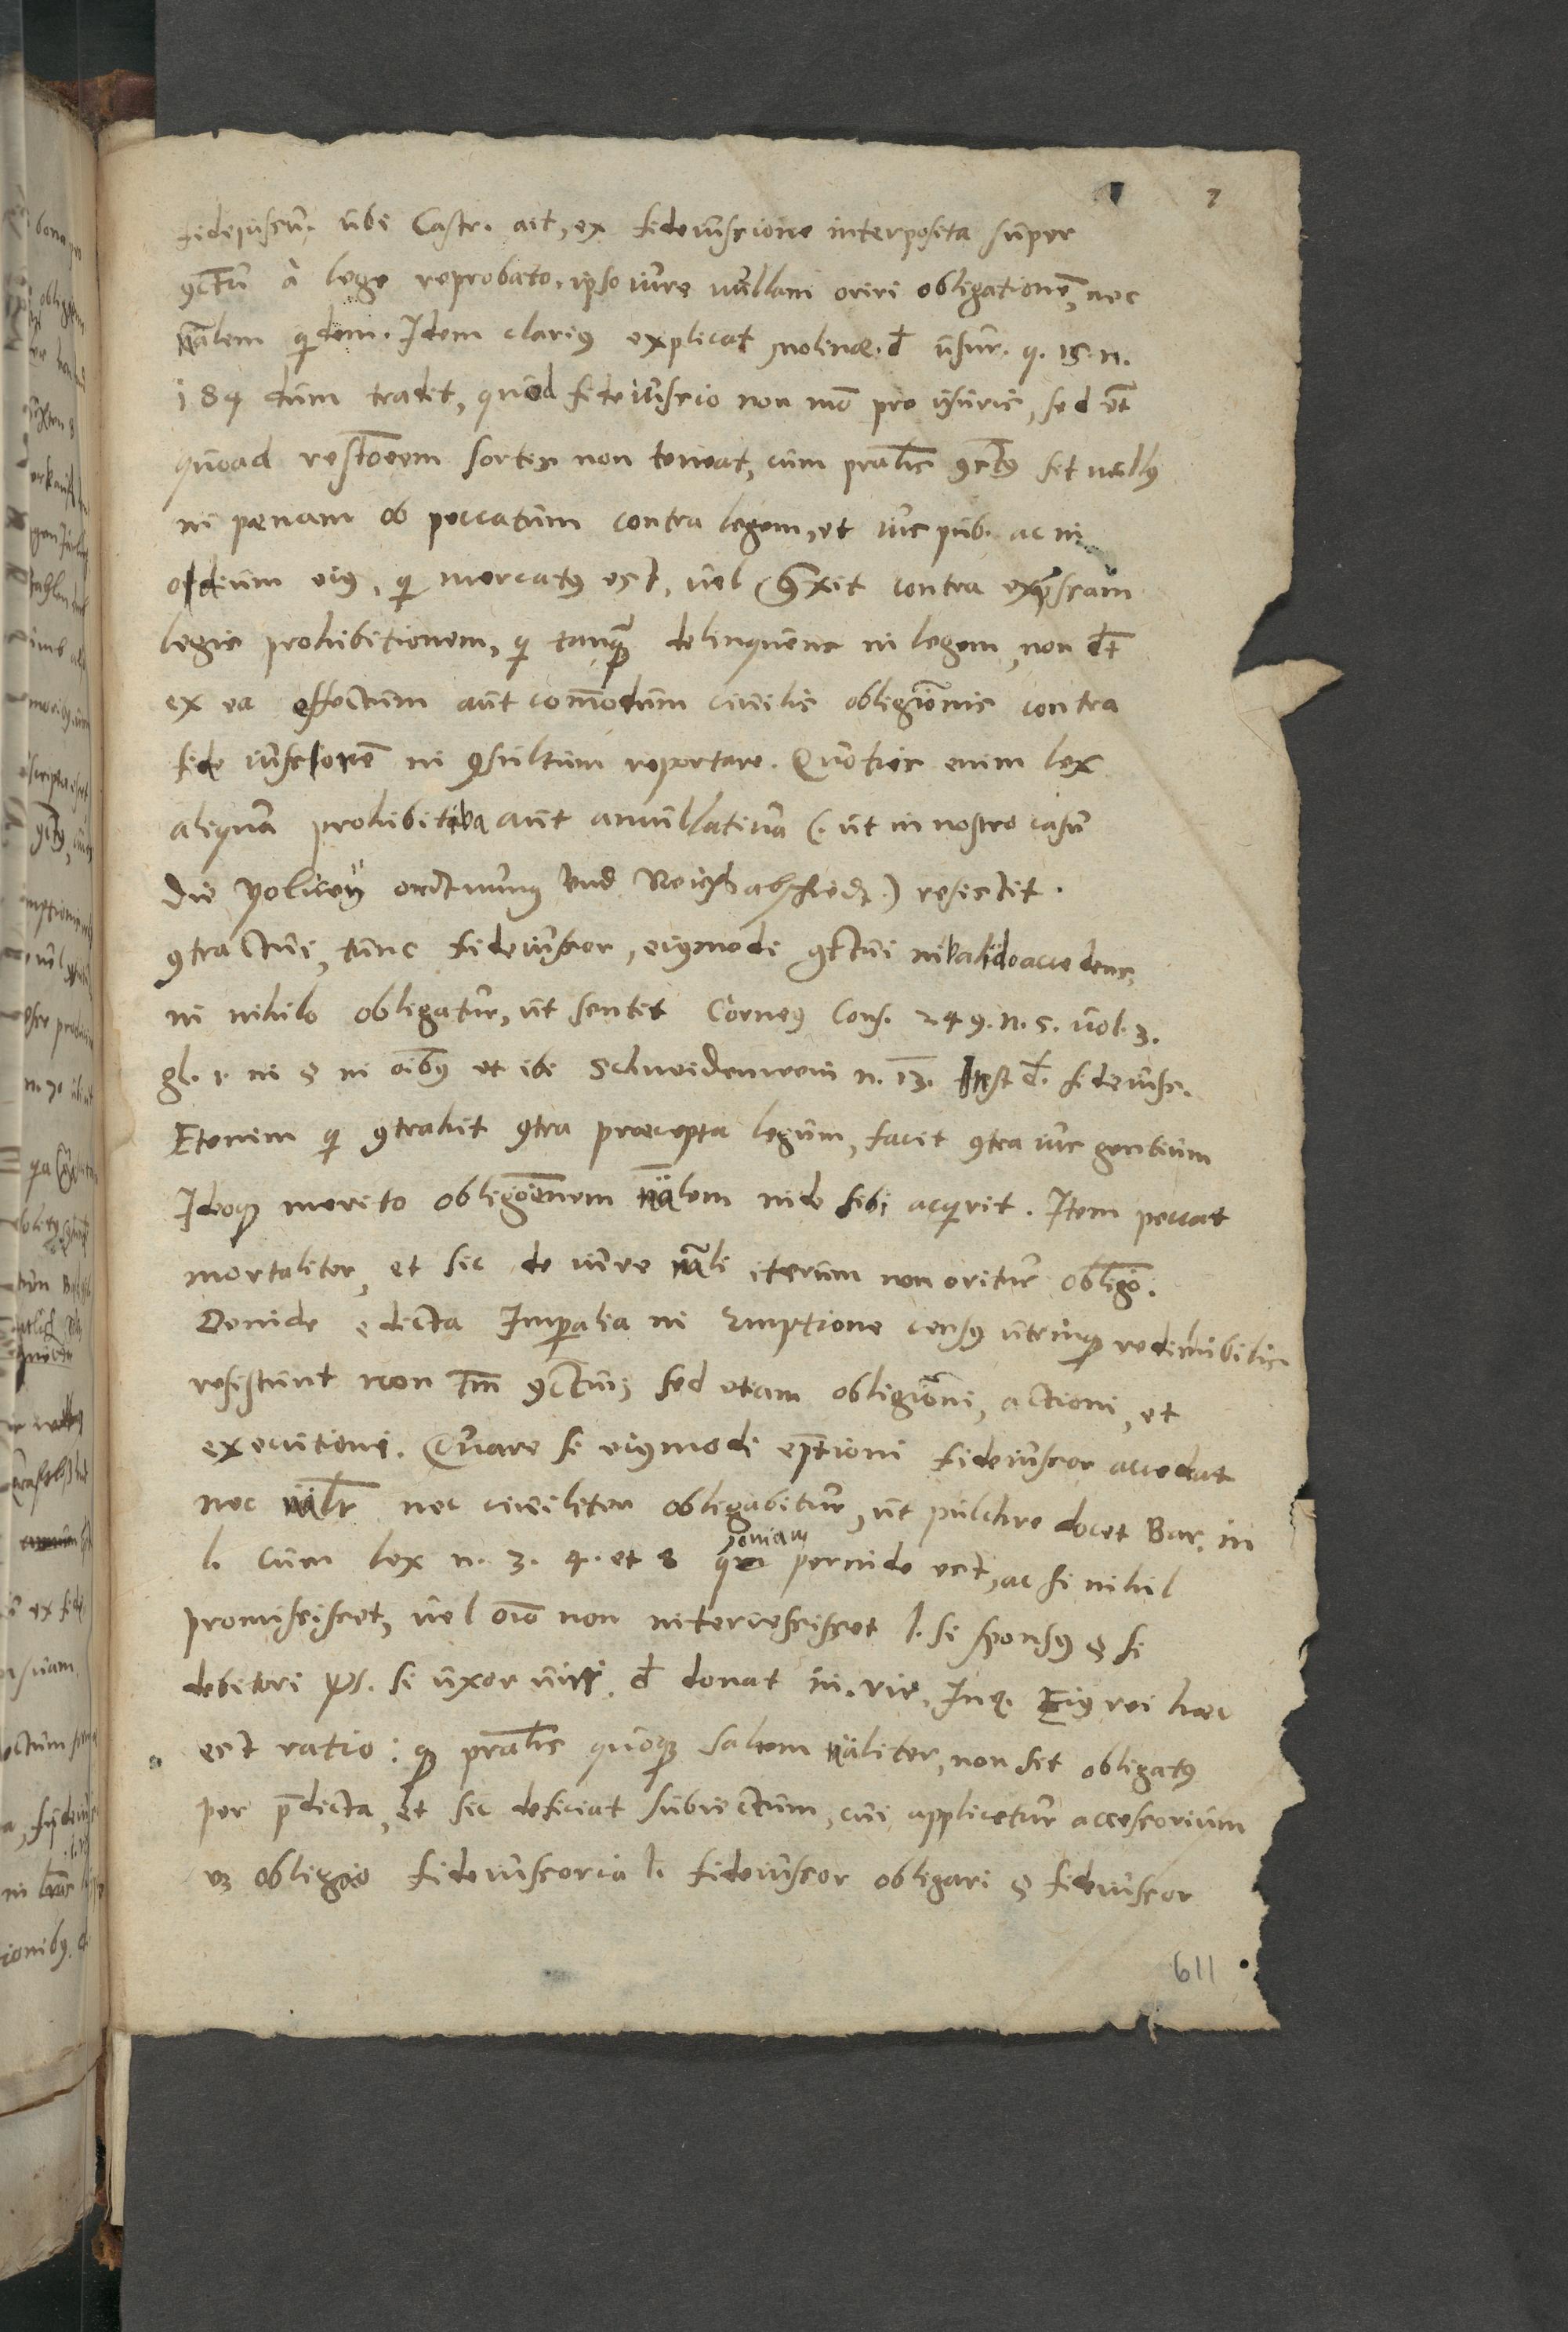 7
fideiussu. ubi Castr. ait, ex fideiussione interposita super
ꝯctũ à lege reprobato, ipso iure nullam oriri obligationẽ, nec
nãlem qidem. Idem clarius explicat molinæ. đ usur. q. 15. n.
184 dum tradit, quod fideiussio non mõ pro usuris, sed ẽt
quoad restõem sortis non teneat, cum pralis ꝯctꝰ sit nullꝰ
in pœnam ob peccatum contra legem, et ius pub. ac in
odium eiꝰ, qi mercatꝰ est, vel ꝯtraxit contra exp̃ssam
legis prohibitionem, qi tanq̃ delinquens in legem, non dt̃
ex ea effectum aut com̃odum civilis obligõnis contra
fideiussorẽ in ꝯsultum reportare. Quoties enim lex
aliqua prohibitiva aut anullativa (. ut in nostro casu
die Policeÿ ordtnung vnd Reichßabschiedt.) resistit.
ꝯtractui, tunc fideiussor, eiꝰmodi ꝯctui invalido accedens,
in nihilo obligatur, ut sentit Corneꝰ Cons. 249. n. 5. vol. 3.
gl. 1. in § in õibꝰ et ibi Schneidenwein n. 13. Inst đ. fideiuss.
Etenim qi ꝯtrahit ꝯtra præcepta legum, facit ꝯtra ius gentium
Ideoq merito obligõenem nãlem inde sibi acqirit. Item peccat
mortaliter, et sic de iure nãli iterum non oritur obligõ.
Deinde edicta Imperalia in Emptione censꝰ utrinq redimibilis
resistunt non tm̃ ꝯctui, sed etiam obligõni, actioni, et
executioni. Quare si eiꝰmodi eptioni fideiussor accedat
nec nãlr nec civiliter obligabitur, ut pulchre docet Bar. in
l. cum lex n. 3. 4. et 8 qoniam perinde est, ac si nihil
promisisset, vel oĩo non intercessisset l. si sponsꝰ § si
debitori ꝟs. si uxor viri. đ donat in. vir. Inq. Eiꝰ rei hæc
est ratio: q pralis quoq saltem nãliter, non sit obligatꝰ
per p̃dicta, et sic deficiat subiectum, cui applicetur accessorium
vz obligõ fideiussoria l. fideiussor obligari § fideiussor
611